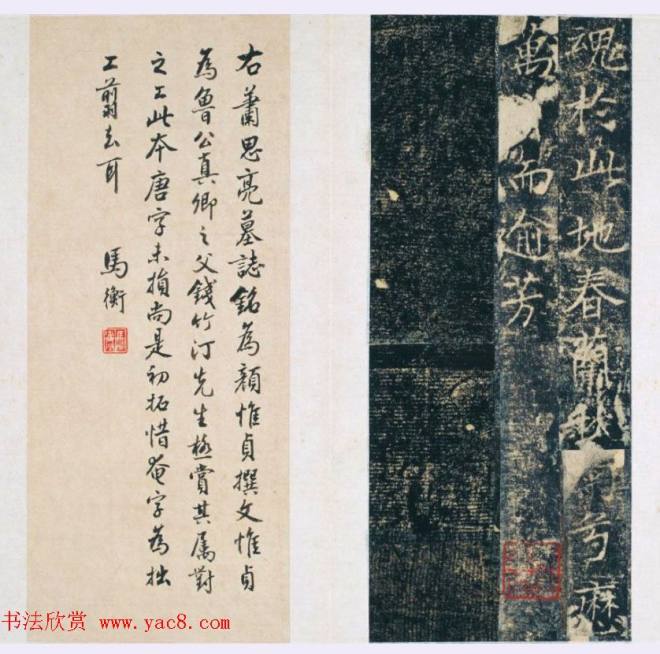 魂於此地春蘭秋
萬
而逾芳
右蕭思亮墓誌銘為顏惟貞撰文惟貞
為魯公真卿之父錢竹汀先生極賞其属對
之工此本唐字未損尚是初拓惜奄字為拙
工翦去耳
馬衡
书法欣赏 www.yac8.com